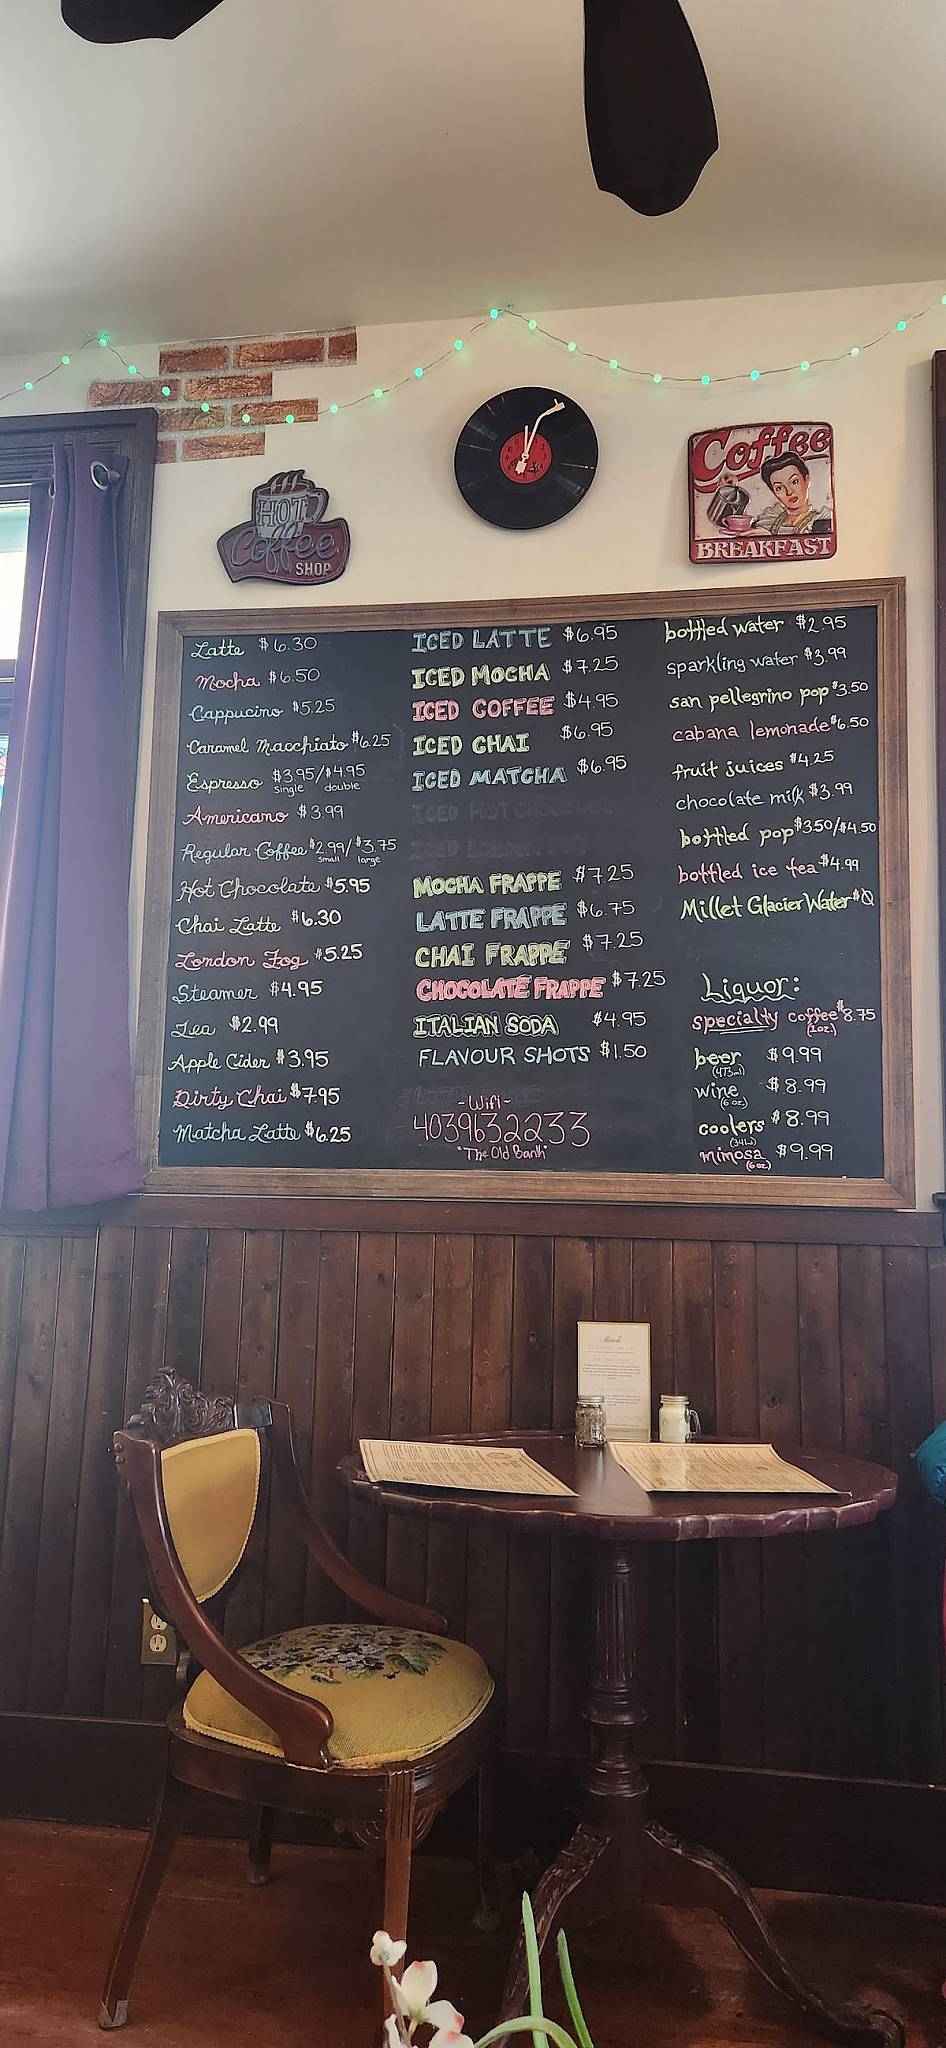 HOT
Coffee
SHOP
Coffee
BREAKFAST
Latte $6.30
Mocha $6.50
Cappucino $5.25
Caramel Macchiato $6.25
Espresso $3.95/$4.95
single double
Americano $3.99
Regular Coffee $2.99/$3.75
small large
Hot Chocolate $5.95
Chai Latte $6.30
London Fog $5.25
Steamer $4.95
Tea $2.99
Apple Cider $3.95
Dirty Chai $7.95
Matcha Latte $6.25
ICED LATTE $6.95
ICED MOCHA $7.25
ICED COFFEE $4.95
ICED CHAI $6.95
ICED MATCHA $6.95
ICED HOT CHOCOLATE
MOCHA FRAPPE $7.25
LATTE FRAPPE $6.75
CHAI FRAPPE $7.25
CHOCOLATE FRAPPE $7.25
ITALIAN SODA $4.95
FLAVOUR SHOTS $1.50
- Wifi -
4039632233
"The Old Bank"
bottled water $2.95
sparkling water $3.99
san pellegrino pop $3.50
cabana lemonade $6.50
fruit juices $4.25
chocolate milk $3.99
bottled pop $3.50/$4.50
bottled ice tea $4.99
Millet Glacier Water $0
Liquor:
specialty coffee $8.75
(1oz.)
beer $9.99
(473ml)
wine $8.99
(6oz.)
coolers $8.99
(341L)
mimosa $9.99
(6oz)
March